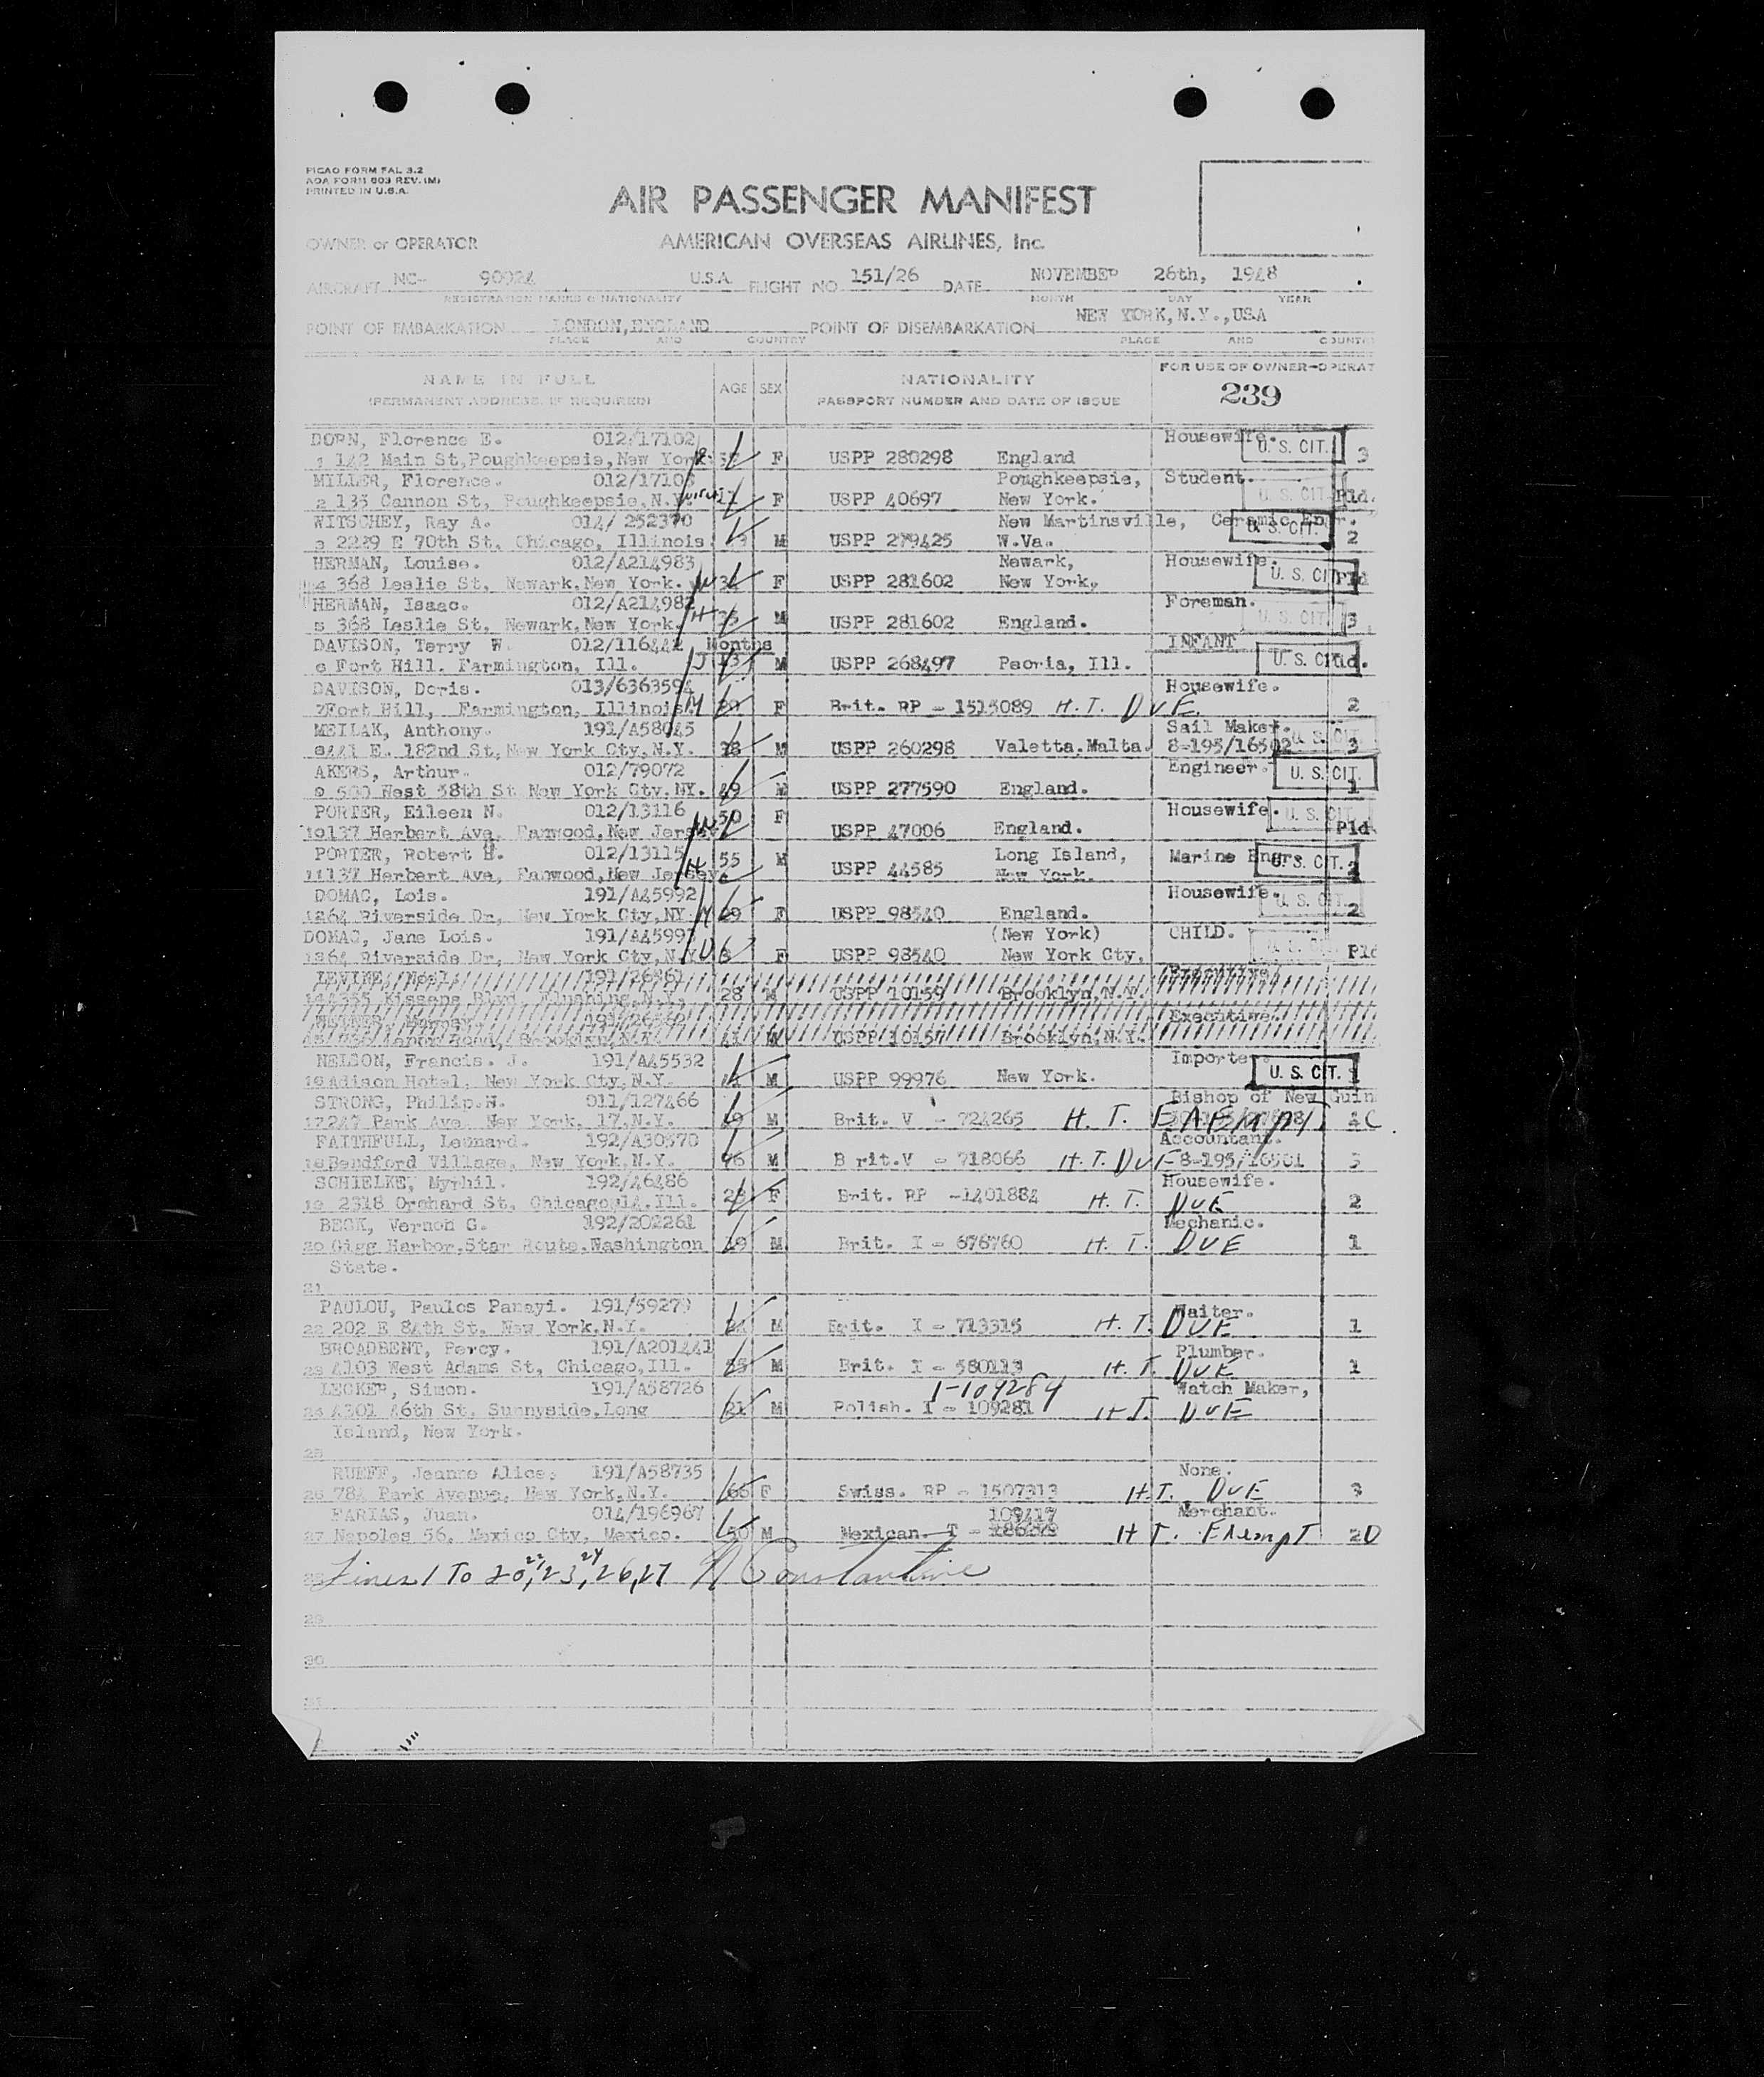 FICAO FORM FAL 3.2
AOA FORM 603 REV. (M)
PRINTED IN U.S.A.
AIR PASSENGER MANIFEST
OWNER or OPERATOR AMERICAN OVERSEAS AIRLINES, Inc.
AIRCRAFT NC- 90924 U.S.A. FLIGHT NO 151/26 DATE NOVEMBER 26th, 1948
REGISTRATION MARKS & NATIONALITY MONTH DAY YEAR
POINT OF EMBARKATION LONDON, ENGLAND POINT OF DISEMBARKATION NEW YORK, N.Y., USA
PLACE AND COUNTRY PLACE AND COUNTR
NAME IN FULL AGE SEX NATIONALITY FOR USE OF OWNER-OPERAT
(PERMANENT ADDRESS, IF REQUIRED) PASSPORT NUMBER AND DATE OF ISSUE 239
DORN, Florence E. 012/17102 Housewife. U. S. CIT.
1 142 Main St, Poughkeepsie, New York. F USPP 280298 England 3
MILLER, Florence. 012/17103 Poughkeepsie, Student.
2 135 Cannon St, Poughkeepsie, N.Y. F USPP 40697 New York. U. S. CIT. Pld.
WITSCHEY, Ray A. 014/ 252370 New Martinsville, Ceramic Engr.
3 2229 E 70th St, Chicago, Illinois. M USPP 279425 W.Va. U. S. CIT. 2
HERMAN, Louise. 012/A214983 Newark, Housewife.
4 368 Leslie St, Newark, New York. W 34 F USPP 281602 New York, U. S. CIT. Pld
HERMAN, Isaac. 012/A214982 Foreman.
5 368 Leslie St, Newark, New York. H 35 M USPP 281602 England. U. S. CIT. 3
DAVISON, Terry W. 012/116442 Months INFANT
6 Fort Hill. Farmington, Ill. 13 M USPP 268497 Peoria, Ill. U. S. CIT. Pld.
DAVISON, Doris. 013/6363594 Housewife.
7 Fort Hill, Farmington, Illinois M F Brit. RP - 1515089 H. T. DUE 2
MEILAK, Anthony. 191/A58045 Sail Maker. U. S. CIT.
8 441 E. 182nd St, New York Cty, N.Y. 38 M USPP 260298 Valetta, Malta. 8-195/16502 3
AKERS, Arthur. 012/79072 Engineer. U. S. CIT.
9 500 West 58th St New York Cty, NY. 49 M USPP 277590 England. 1
PORTER, Eileen N. 012/13116 50 F Housewife. U. S. CIT.
10 137 Herbert Ave, Fanwood, New Jersey. W USPP 47006 England. Pld.
PORTER, Robert H. 012/13115 55 M Long Island, Marine Engr. U. S. CIT.
11 137 Herbert Ave, Fanwood, New Jersey. H USPP 44585 New York. 2
DOMAC, Lois. 191/A45992 Housewife. U. S. CIT.
12 64 Riverside Dr, New York Cty, NY. M 29 F USPP 98540 England. 2
DOMAC, Jane Lois. 191/A45993 (New York) CHILD.
13 64 Riverside Dr, New York Cty, N.Y. D F USPP 98540 New York Cty, Pld
LEVINE, 191/26361 Executive.
14 Kissena Blvd, Flushing, N.Y. 28 M USPP 10159 Brooklyn, N.Y.
Executive.
15 Road, Brooklyn, N.Y. 41 M USPP 10157 Brooklyn, N.Y.
NELSON, Francis. J. 191/A45532 Importer.
16 Adison Hotel, New York Cty, N.Y. M USPP 99976 New York. U. S. CIT. 1
STRONG, Philip.N. 011/127466 Bishop of New Guin
17 247 Park Ave, New York, 17, N.Y. 49 M Brit. V - 724265 H. T. EXEMPT 4C
FAITHFULL, Leonard. 192/A30570 Accountant.
18 Bendford Village, New York, N.Y. 46 M B rit.V - 718066 H. T. DUE 8-195/16501 3
SCHIELKE, Myrhil. 192/46486 Housewife.
19 2318 Orchard St, Chicago 14, Ill. 28 F Brit. RP -1401884 H. T. DUE 2
BECK, Vernon G. 192/202261 Mechanic.
20 Gigg Harbor, Star Route, Washington 49 M Brit. I - 676760 H. T. DUE 1
State.
21
PAULOU, Paulos Panayi. 191/59279 Waiter.
22 202 E 84th St, New York, N.Y. M Brit. I - 713315 H. T. DUE 1
BROADBENT, Percy. 191/A201441 Plumber.
23 4103 West Adams St, Chicago, Ill. M Brit. I - 580113 H. T. DUE 1
LECKER, Simon. 191/A58726 I-109284 Watch Maker,
24 4301 46th St, Sunnyside, Long 21 M Polish. I - 109281 H T. DUE
Island, New York.
25
RUEFF, Jeanne Alice. 191/A58735 None.
26 784 Park Avenue, New York, N.Y. 66 F Swiss. RP - 1507313 H.T. DUE 3
FARIAS, Juan. 014/196967 109417 Merchant.
27 Napoles 56, Mexico Cty, Mexico. 50 M Mexican. T - H T. Exempt 2D
28 Lines 1 To 20, 22, 23, 24, 26, 27 N Constantine
29
30
31